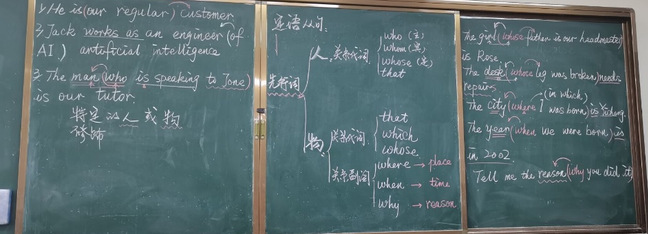 1. He is (our regular) customer.
2. Jack works as an engineer (of
AI.) artificial intelligence
3. The man (who is speaking to Jone)
is our tutor.
特定的人或物
修饰
定语从句:
先行词
人 关系代词
who (主)
whom (宾)
whose (定)
that
物 关系代词
that
which
whose
关系副词
where → place
when → time
why → reason
The girl (whose father is our headmaster)
is Rose.
The desk (whose leg was broken) needs
repairs.
(in which)
The city (where I was born) is
The year (when we were born) is
in 2002.
Tell me the reason (why you did it)